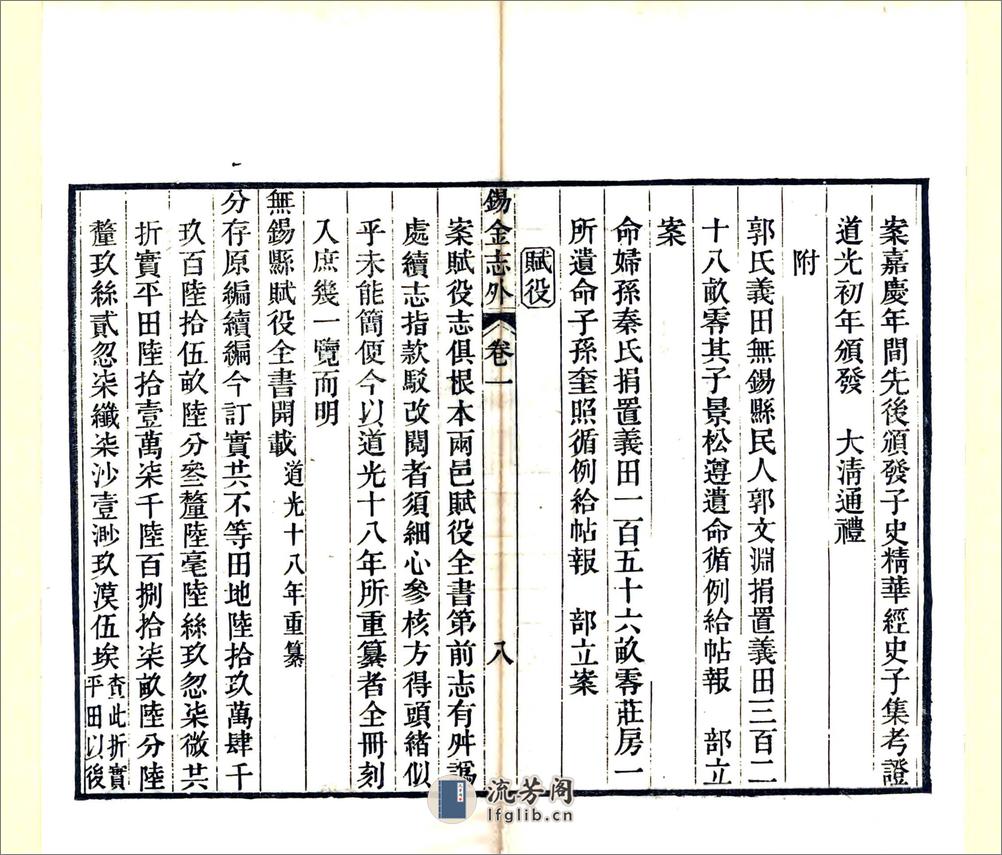 案嘉慶年間先後頒發子史精華經史子集考證
道光初年頒發　大清通禮
附
郭氏義田無錫縣民人郭文淵捐置義田三百二
十八畝零其子景松遵遺命循例給帖報　部立
案
命婦孫秦氏捐置義田一百五十六畝零莊房一
所遺命子孫奎照循例給帖報　部立案
賦役
錫金志外　卷一　八
案賦役志俱根本兩邑賦役全書第前志有舛譌
處續志指款駁改閱者須細心參核方得頭緒似
乎未能簡便今以道光十八年所重纂者全冊刻
入庶幾一覽而明
無錫縣賦役全書開載道光十八年重纂
分存原編續編今訂實共不等田地陸拾玖萬肆千
玖百陸拾伍畝陸分叄釐陸毫陸絲玖忽柒微共
折實平田陸拾壹萬柒千陸百捌拾柒畝陸分陸
釐玖絲貳忽柒纖柒沙壹渺玖漠伍埃查此折實
平田以後
流芳阁
lfglib.cn